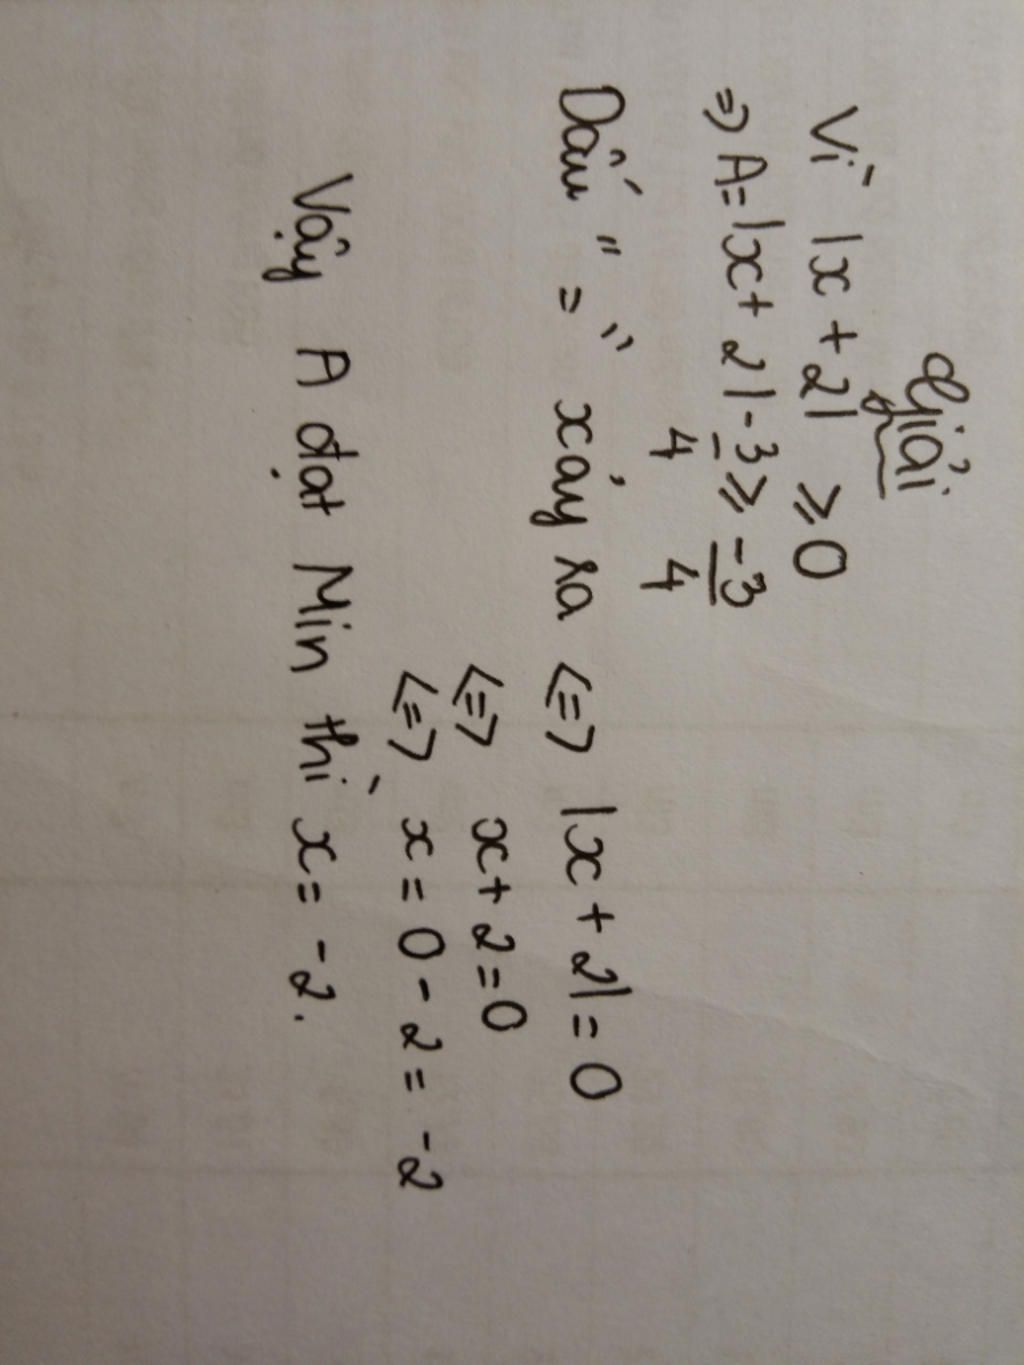 Giải
Vì |x + 2| ≥ 0
=> A = |x + 2| - 3/4 ≥ -3/4
Dấu " = " xảy ra <=> |x + 2| = 0
<=> x + 2 = 0
<=> x = 0 - 2 = -2
Vậy A đạt Min thì x = -2.